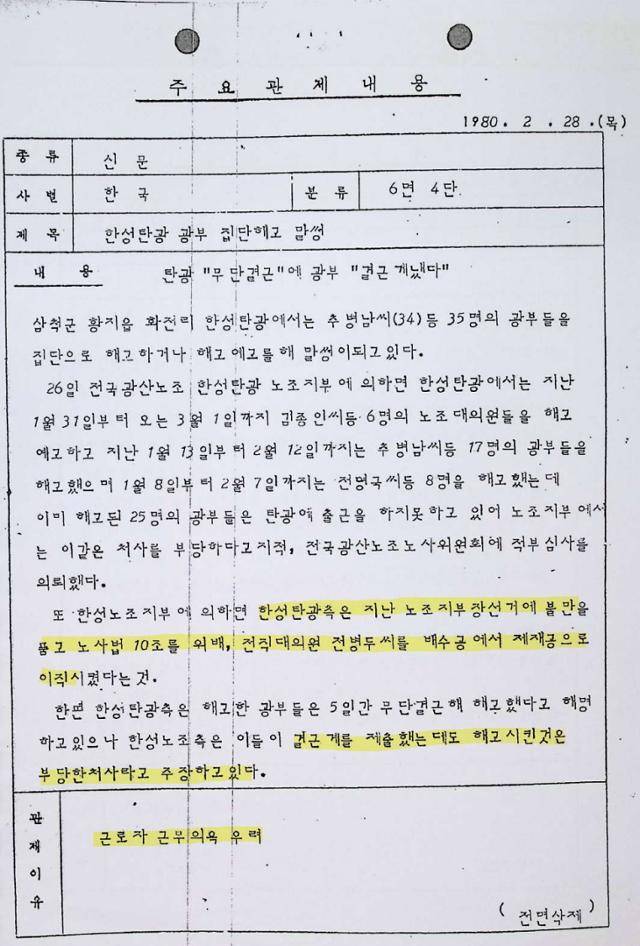 주 요 관 제 내 용
1980. 2. 28. (목)
종 류 신 문
사 별 한 국 분 류 6면 4단
제 목 한성탄광 광부 집단해고 말썽
내 용 탄광 "무단결근"에 광부 "결근계냈다"
삼척군 황지읍 화전리 한성탄광에서는 추병남씨(34)등 35명의 광부들을
집단으로 해고하거나 해고예고를해 말썽이되고있다.
26일 전국광산노조 한성탄광 노조지부에 의하면 한성탄광에서는 지난
1월 31일부터 오는 3월 1일까지 김종인씨등 6명의 노조대의원들을 해고
예고하고 지난 1월 13일부터 2월 12일까지는 추병남씨등 17명의 광부들을
해고했으며 1월 8일부터 2월 7일까지는 전명국씨등 8명을 해고했는데
이미 해고된 25명의 광부들은 탄광에 출근을 하지못하고 있어 노조지부에서
는 이같은 처사를 부당하다고지적, 전국광산노조노사위원회에 적부심사를
의뢰했다.
또 한성노조지부에 의하면 한성탄광측은 지난 노조지부장선거에 불만을
품고 노사법 10조를 위배, 전직대의원 전병두씨를 배수공에서 제재공으로
이직시켰다는것.
한편 한성탄광측은 해고한 광부들은 5일간 무단결근해 해고했다고 해명
하고있으나 한성노조측은 이들이 결근계를 제출했는데도 해고시킨것은
부당한처사라고 주장하고있다.
관 제 이 유 근로자 근무의욕 우려
(전면삭제)